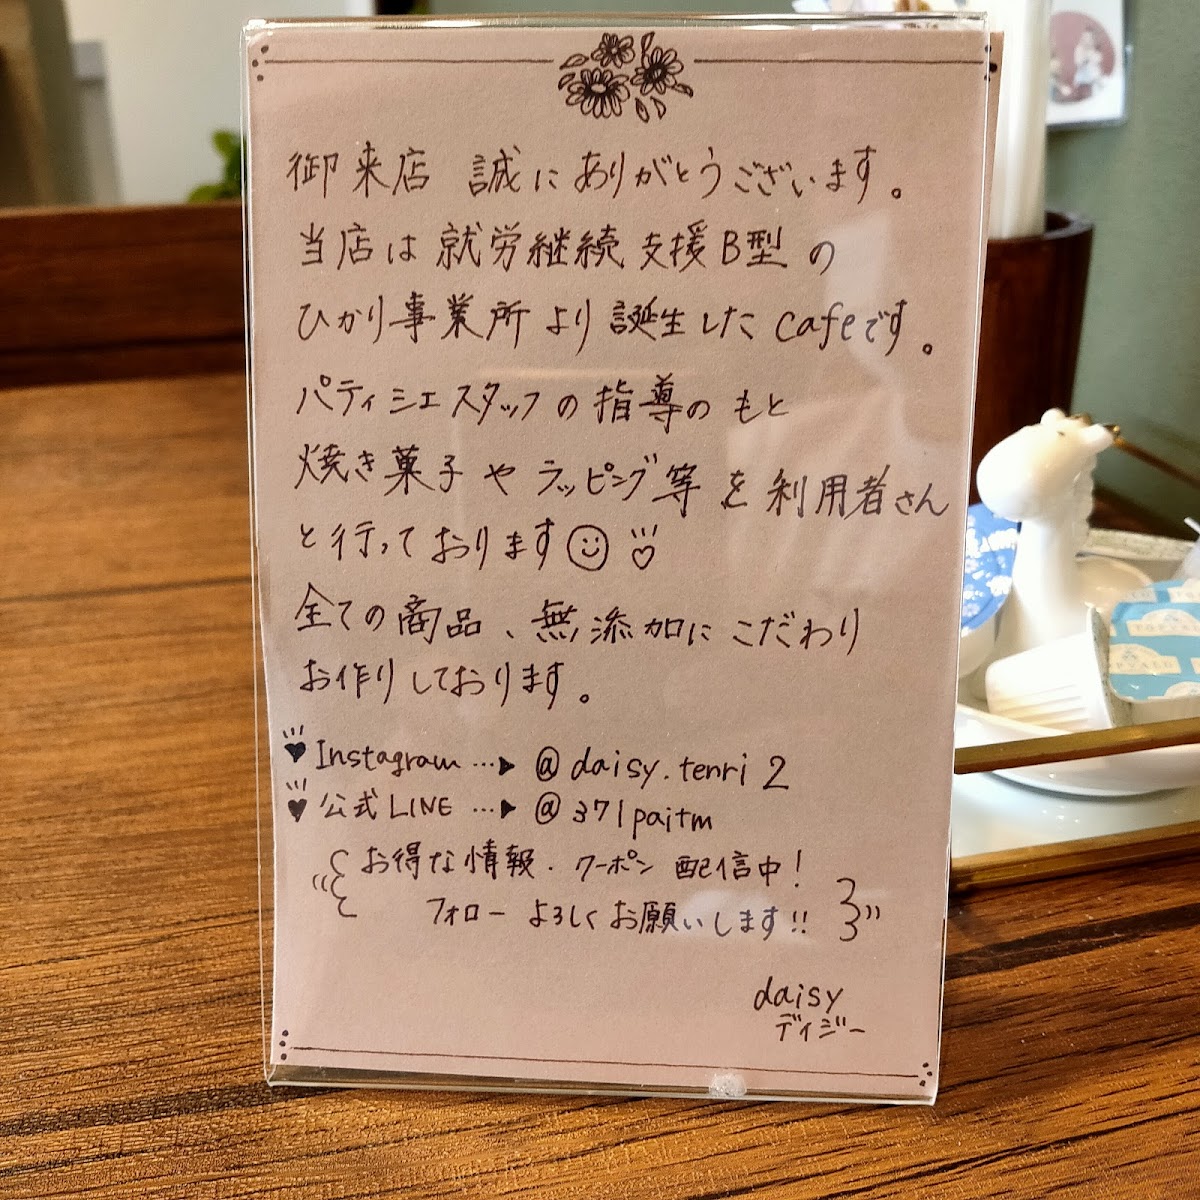 御来店 誠にありがとうございます。
当店は就労継続支援B型の
ひかり事業所より誕生したcafeです。
パティシエスタッフの指導のもと
焼き菓子やラッピング等を利用者さん
と行っております
全ての商品、無添加にこだわり
お作りしております。
Instagram … @daisy.tenri2
公式LINE … @371paitm
お得な情報・クーポン配信中!
フォローよろしくお願いします!!
daisy
デイジー